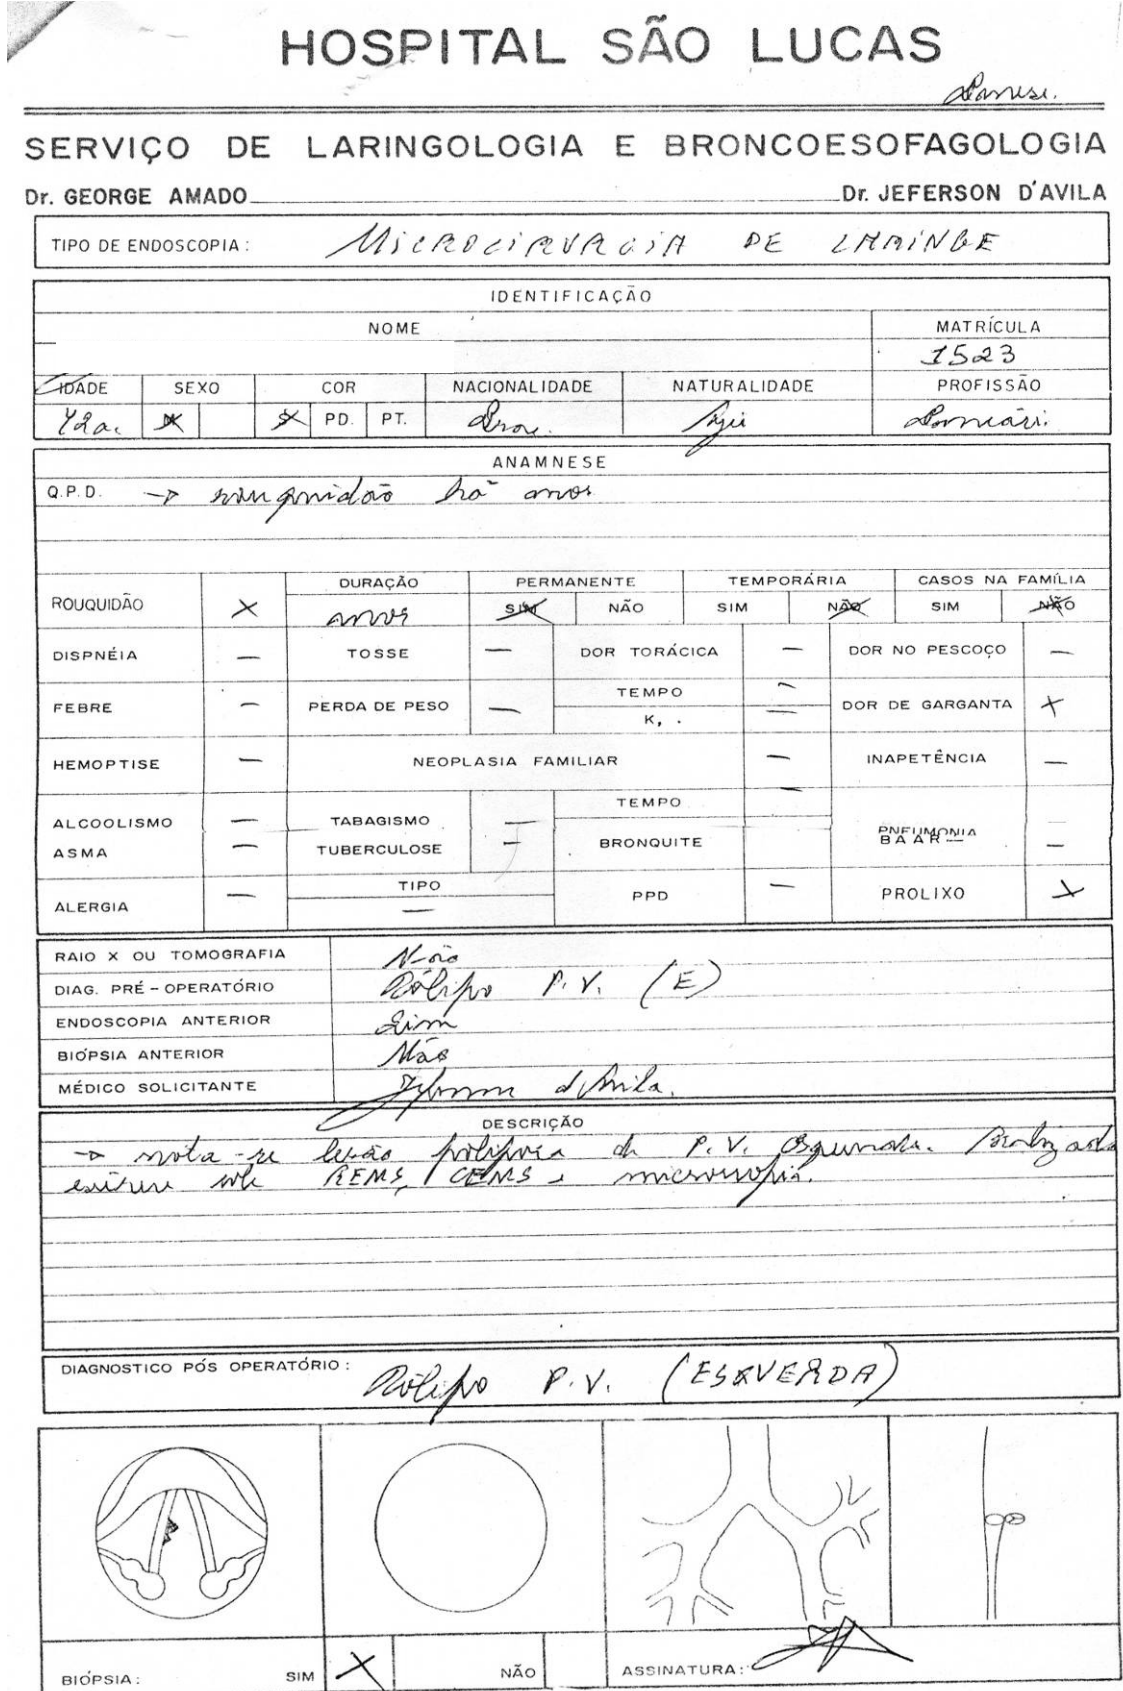 HOSPITAL SÃO LUCAS
SERVIÇO DE LARINGOLOGIA E BRONCOESOFAGOLOGIA
Dr. GEORGE AMADO Dr. JEFERSON D'AVILA
TIPO DE ENDOSCOPIA: MICROCIRURGIA DE LARINGE
IDENTIFICAÇÃO
NOME MATRÍCULA
1523
IDADE SEXO COR NACIONALIDADE NATURALIDADE PROFISSÃO
42a. X X PD. PT. Bras.
ANAMNESE
Q.P.D. → rouquidão há anos
DURAÇÃO PERMANENTE TEMPORÁRIA CASOS NA FAMÍLIA
ROUQUIDÃO X anos SIM NÃO SIM NÃO SIM NÃO
DISPNÉIA — TOSSE — DOR TORÁCICA — DOR NO PESCOÇO —
TEMPO —
FEBRE — PERDA DE PESO — K, . — DOR DE GARGANTA X
HEMOPTISE — NEOPLASIA FAMILIAR — INAPETÊNCIA —
TEMPO —
ALCOOLISMO — TABAGISMO — PNEUMONIA —
ASMA — TUBERCULOSE — BRONQUITE BAAR —
TIPO
ALERGIA — — PPD — PROLIXO X
RAIO X OU TOMOGRAFIA Não
DIAG. PRÉ-OPERATÓRIO Pólipo P.V. (E)
ENDOSCOPIA ANTERIOR Sim
BIÓPSIA ANTERIOR Não
MÉDICO SOLICITANTE Jeferson d'Avila.
DESCRIÇÃO
→ nota-se lesão de P.V. Esquerda. Realizada
exérese sob REMS, CEMS e microscopia.
DIAGNOSTICO PÓS OPERATÓRIO: Pólipo P.V. (ESQVERDA)
BIÓPSIA: SIM X NÃO ASSINATURA: